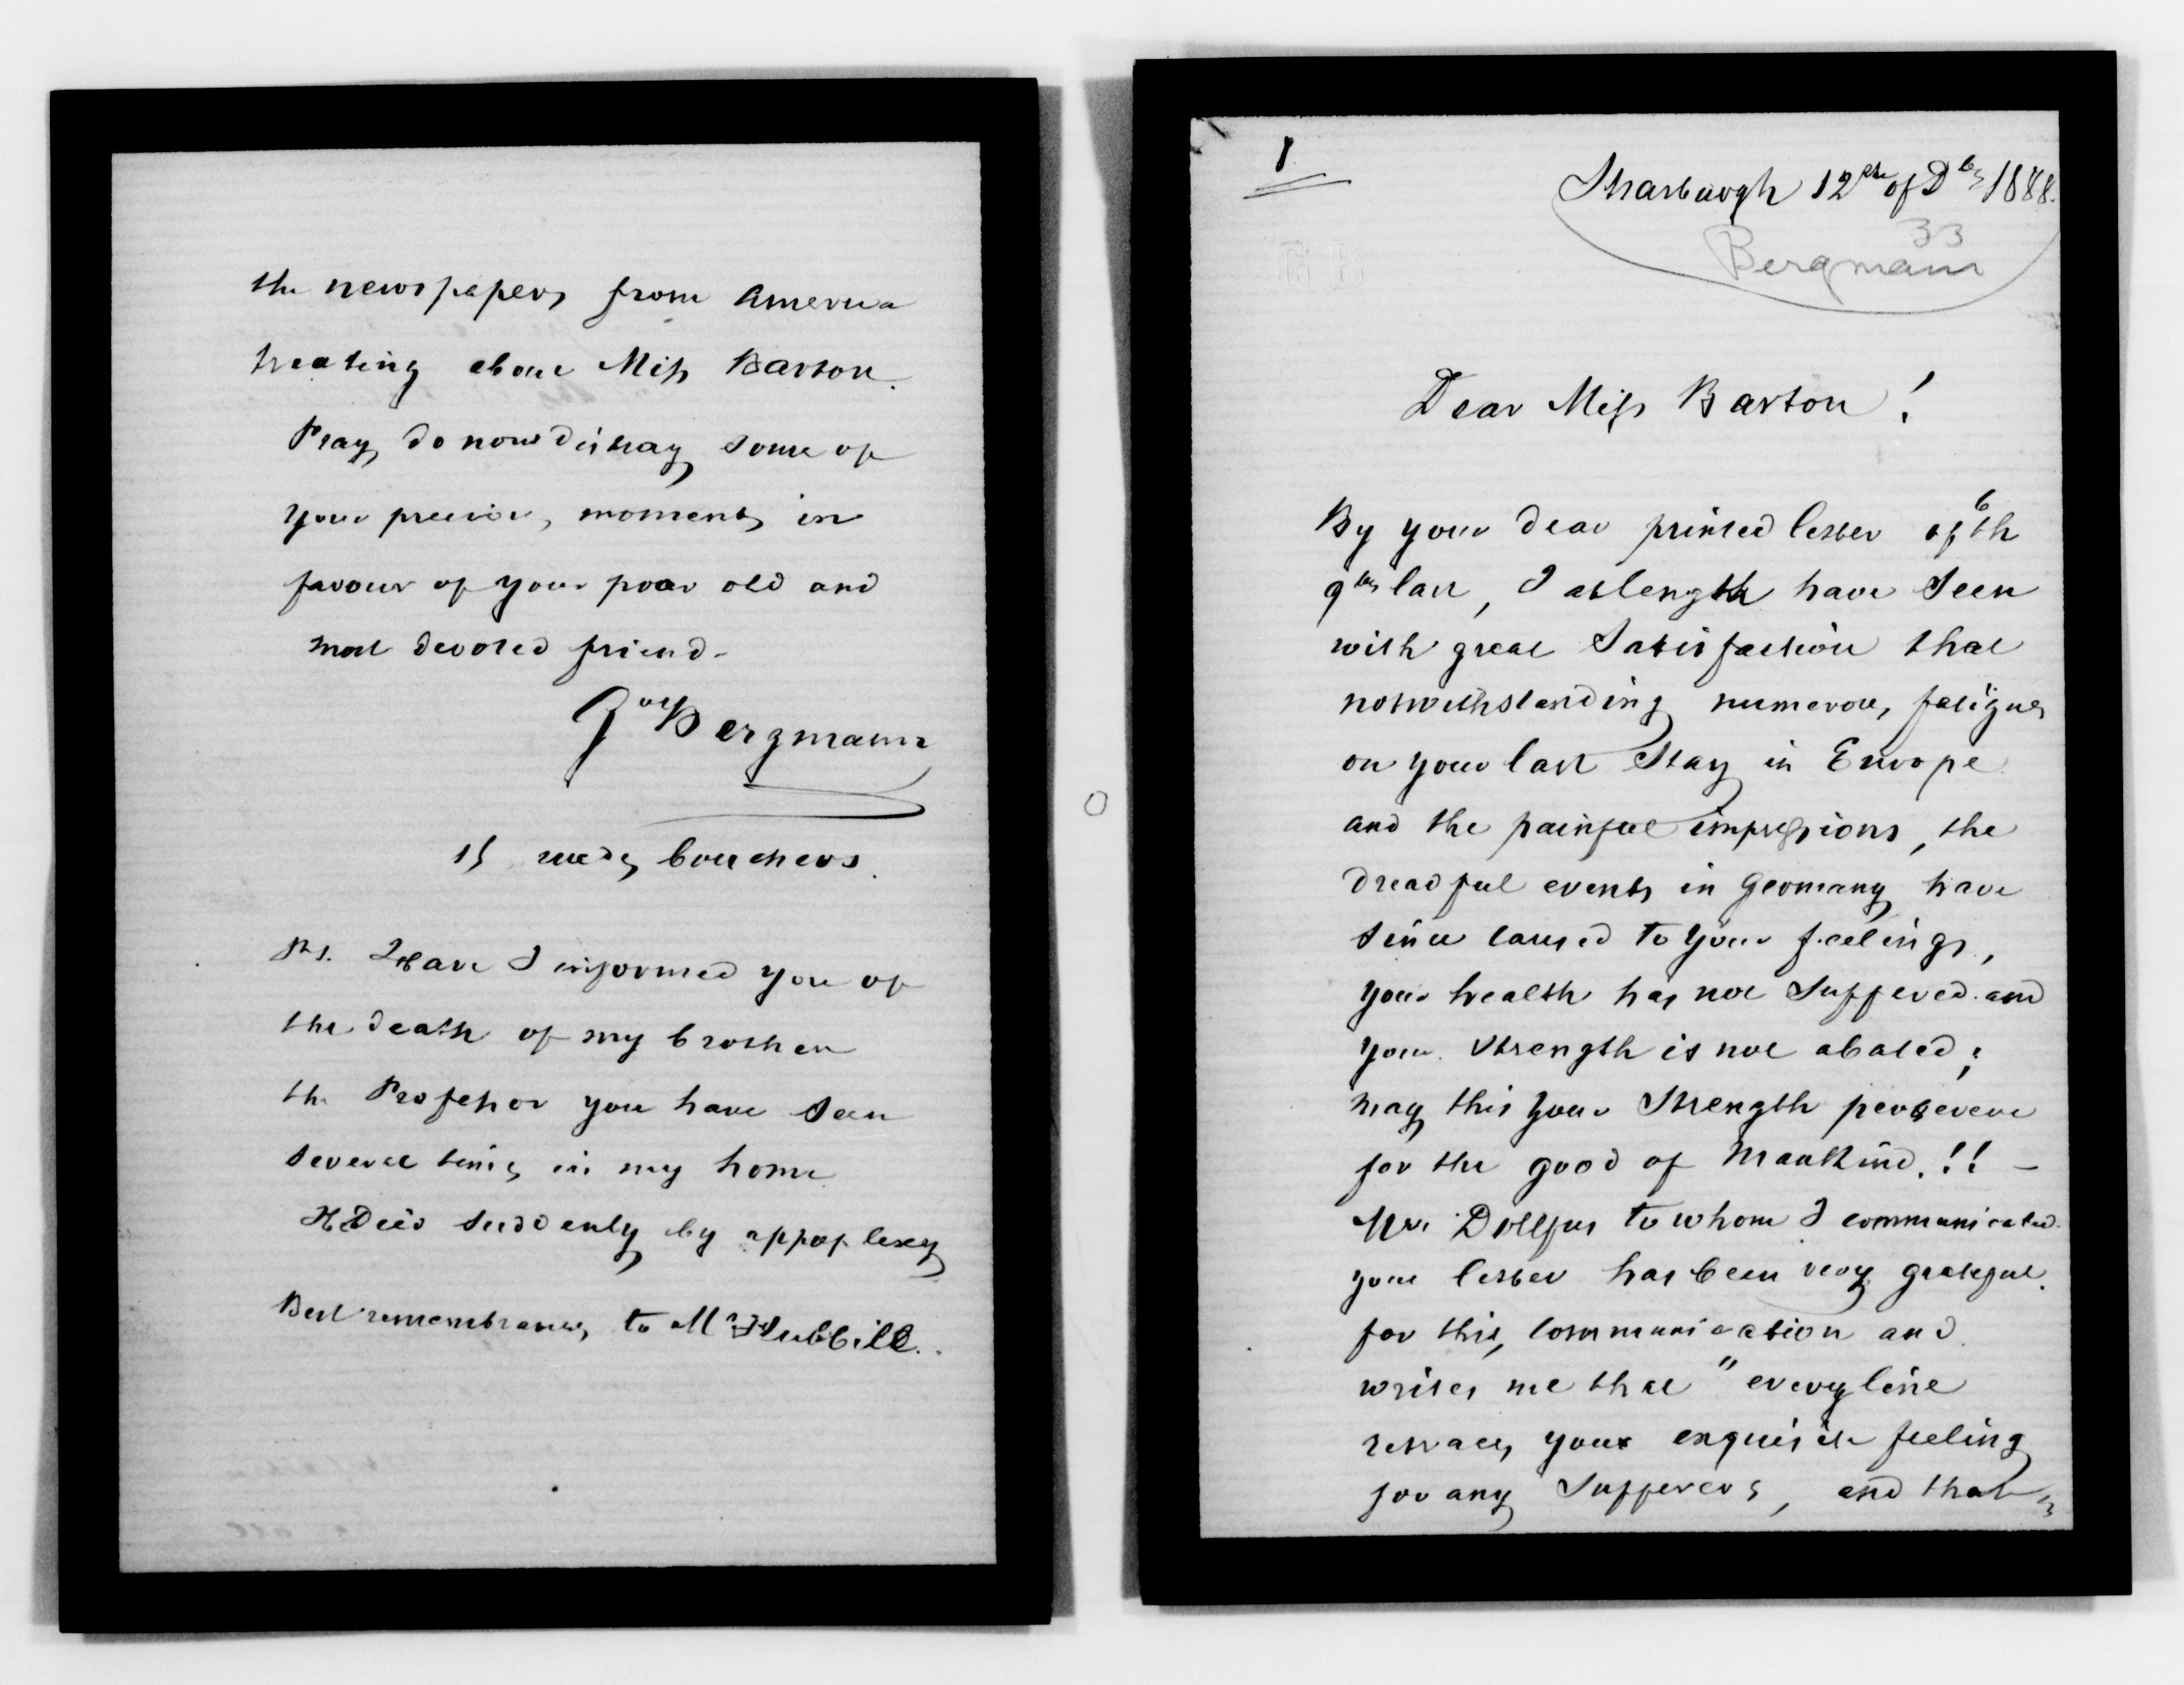 the newspapers from America
treating about Miss Barton.
Pray, do now distray some of
your precious moments in
favour of your poor old and
most devoted friend-
Bergmann
15 rue des bouchers.
Ps. Have I informed you of
the death of my brother
the Professor you have seen
several times in my home
He Died suddenly by appoplexy
Best remembrances to Hubbill.
1
Strasburgh 12th of Dbr 1888.
33
Bergmann
Dear Miss Barton!
By your dear printed letter of 6th
9br last, I atlength have seen
with great Satisfaction that
notwithstanding numerous fatigues
on your last Stay in Europe
and the painful impressions, the
dreadful events in Germany have
since caused to your feelings,
your health has not suffered and
your strength is not abated;
may this your Strength persevere
for the good of Mankind.!! -
Mr Dollfus to whom I communicated
your letter has been very grateful
for this communication and
writes me that "every line
retraces your exquisite feeling
for any Sufferers, and that